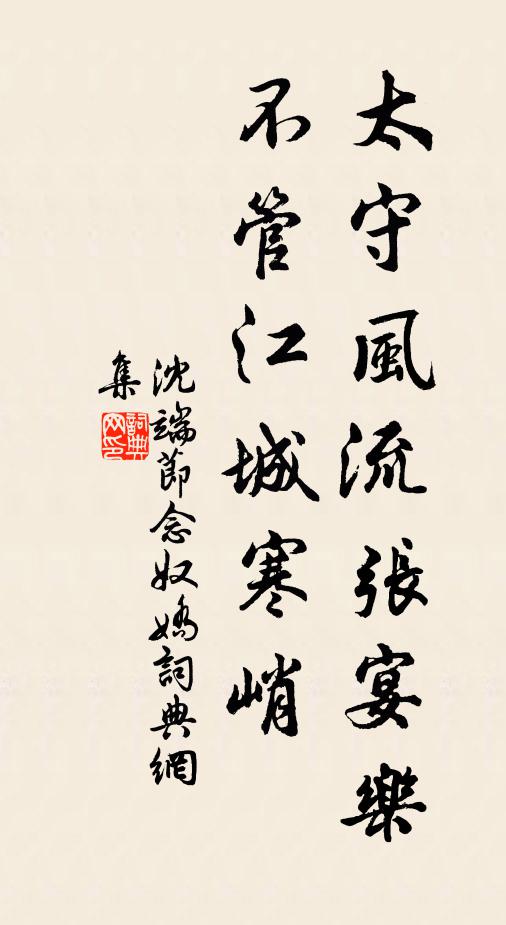 太守風流張宴樂
不管江城寒峭
沈端節念奴嬌詞典網
集
詞典
网印